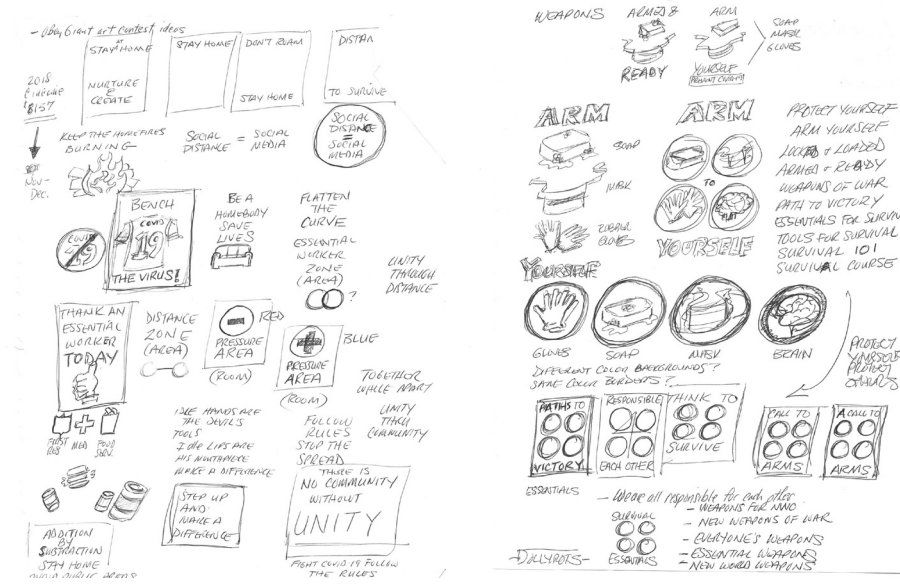 - Obey Giant art contest ideas
STAY HOME
NURTURE
&
CREATE
STAY HOME
DON'T ROAM
STAY HOME
DISTAN
TO SURVIVE
2018
$157
NOV-
DEC.
KEEP THE HOMEFIRES
BURNING
SOCIAL
DISTANCE
=
SOCIAL
MEDIA
SOCIAL
DISTANCE
=
SOCIAL
MEDIA
COVID
19
BENCH
COVID
19
THE VIRUS!
BE A
HOMEBODY
SAVE
LIVES
FLATTEN
THE
CURVE
ESSENTIAL
WORKER
ZONE
(AREA)
?
UNITY
THROUGH
DISTANCE
THANK AN
ESSENTIAL
WORKER
TODAY
DISTANCE
ZONE
(AREA)
RED
PRESSURE
AREA
(ROOM)
BLUE
PRESSURE
AREA
(ROOM)
TOGETHER
WHILE APART
UNITY
THRU
COMMUNITY
FIRST
MED
FOOD
SERV.
IDLE HANDS ARE
THE DEVIL'S
TOOLS
IDLE LIPS ARE
HIS MOUTHPIECE
MAKE A DIFFERENCE
FOLLOW
RULES
STOP THE
SPREAD
THERE IS
NO COMMUNITY
WITHOUT
UNITY
STEP UP
AND
MAKE A
DIFFERENCE
ADDITION
BY
SUBTRACTION
STAY HOME
AVOID PUBLIC AREAS
FIGHT COVID 19 FOLLOW
THE RULES
WEAPONS
ARMED &
READY
ARM
YOURSELF
PREVENT COVID19
SOAP
MASK
GLOVES
ARM
SOAP
MASK
RUBBER
GLOVES
YOURSELF
ARM
TO
YOURSELF
PROTECT YOURSELF
ARM YOURSELF
LOCKED & LOADED
ARMED & READY
WEAPONS OF WAR
PATH TO VICTORY
ESSENTIALS FOR SURVIV
TOOLS FOR SURVIVAL
SURVIVAL 101
SURVIVAL COURSE
GLOVES
SOAP
MASK
BRAIN
DIFFERENT COLOR BACKGROUNDS?
SAME COLOR BORDERS?
PROTECT
YOURSELF
PROTECT
OTHERS
PATHS TO
VICTORY
RESPONSIBLE
EACH OTHER
THINK TO
SURVIVE
CALL TO
ARMS
A CALL TO
ARMS
ESSENTIALS
- We are all responsible for each other
SURVIVAL
ESSENTIALS
- WEAPONS FOR NWO
- NEW WEAPONS OF WAR
- EVERYONE'S WEAPONS
- ESSENTIAL WEAPONS
- NEW WORLD WEAPONS
- DOLLYROTS -